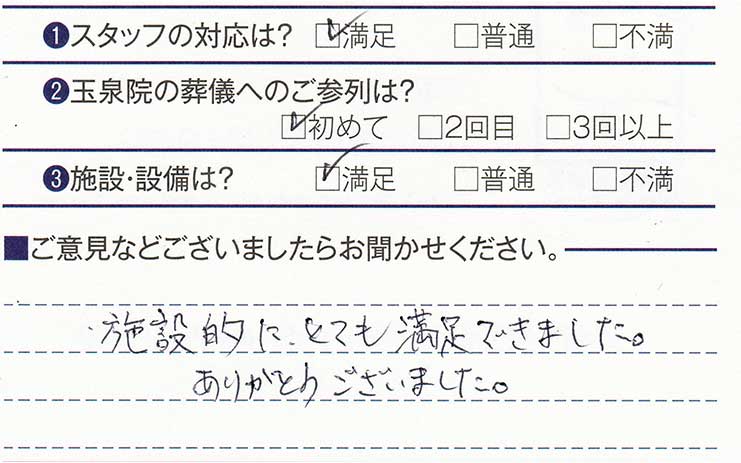 ❶スタッフの対応は? ☑満足 □普通 □不満
❷玉泉院の葬儀へのご参列は?
☑初めて □2回目 □3回以上
❸施設・設備は? ☑満足 □普通 □不満
■ご意見などございましたらお聞かせください。
・施設的に、とても満足できました。
ありがとうございました。